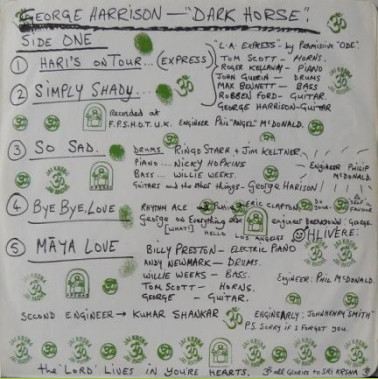 GEORGE HARRISON — "DARK HORSE".
SIDE ONE
① HARI'S ON TOUR... (EXPRESS)
"L.A. EXPRESS" - by Permissive "ODE".
TOM SCOTT - HORNS.
ROGER KELLAWAY - PIANO
JOHN GUERIN - DRUMS
MAX BENNETT - BASS
ROBBEN FORD - GUITAR.
GEORGE HARRISON - GUITAR
② SIMPLY SHADY...
Recorded at
F.P.S.H.O.T. U.K. ENGINEER Phil "ANGEL" McDONALD.
③ SO SAD.
DRUMS RINGO STARR + JIM KELTNER
PIANO... NICKY HOPKINS
BASS... WILLIE WEEKS.
GUITARS and the other things - GEORGE HARISON
ENGINEER PHILIP
McDONALD.
④ BYE BYE, LOVE
RHYTHM ACE
ERIC CLAPTON
George on Everything else
[WHAT?]
HELLO
LOS ANGELES
engineer breakdown: George
OHLIVERE:
⑤ MĀYA LOVE
BILLY PRESTON - ELECTRIC PIANO
ANDY NEWMARK - DRUMS.
WILLIE WEEKS - BASS.
TOM SCOTT - HORNS.
GEORGE - GUITAR.
Engineer: PHIL McDONALD.
SECOND ENGINEER → KUMAR SHANKAR
ENGINEARLY: JOHN HENRY SMITH
P.S. SORRY I FORGOT YOU.
the 'LORD' LIVES IN YOU'RE HEARTS.
all GLORIES TO SRI KRSNA